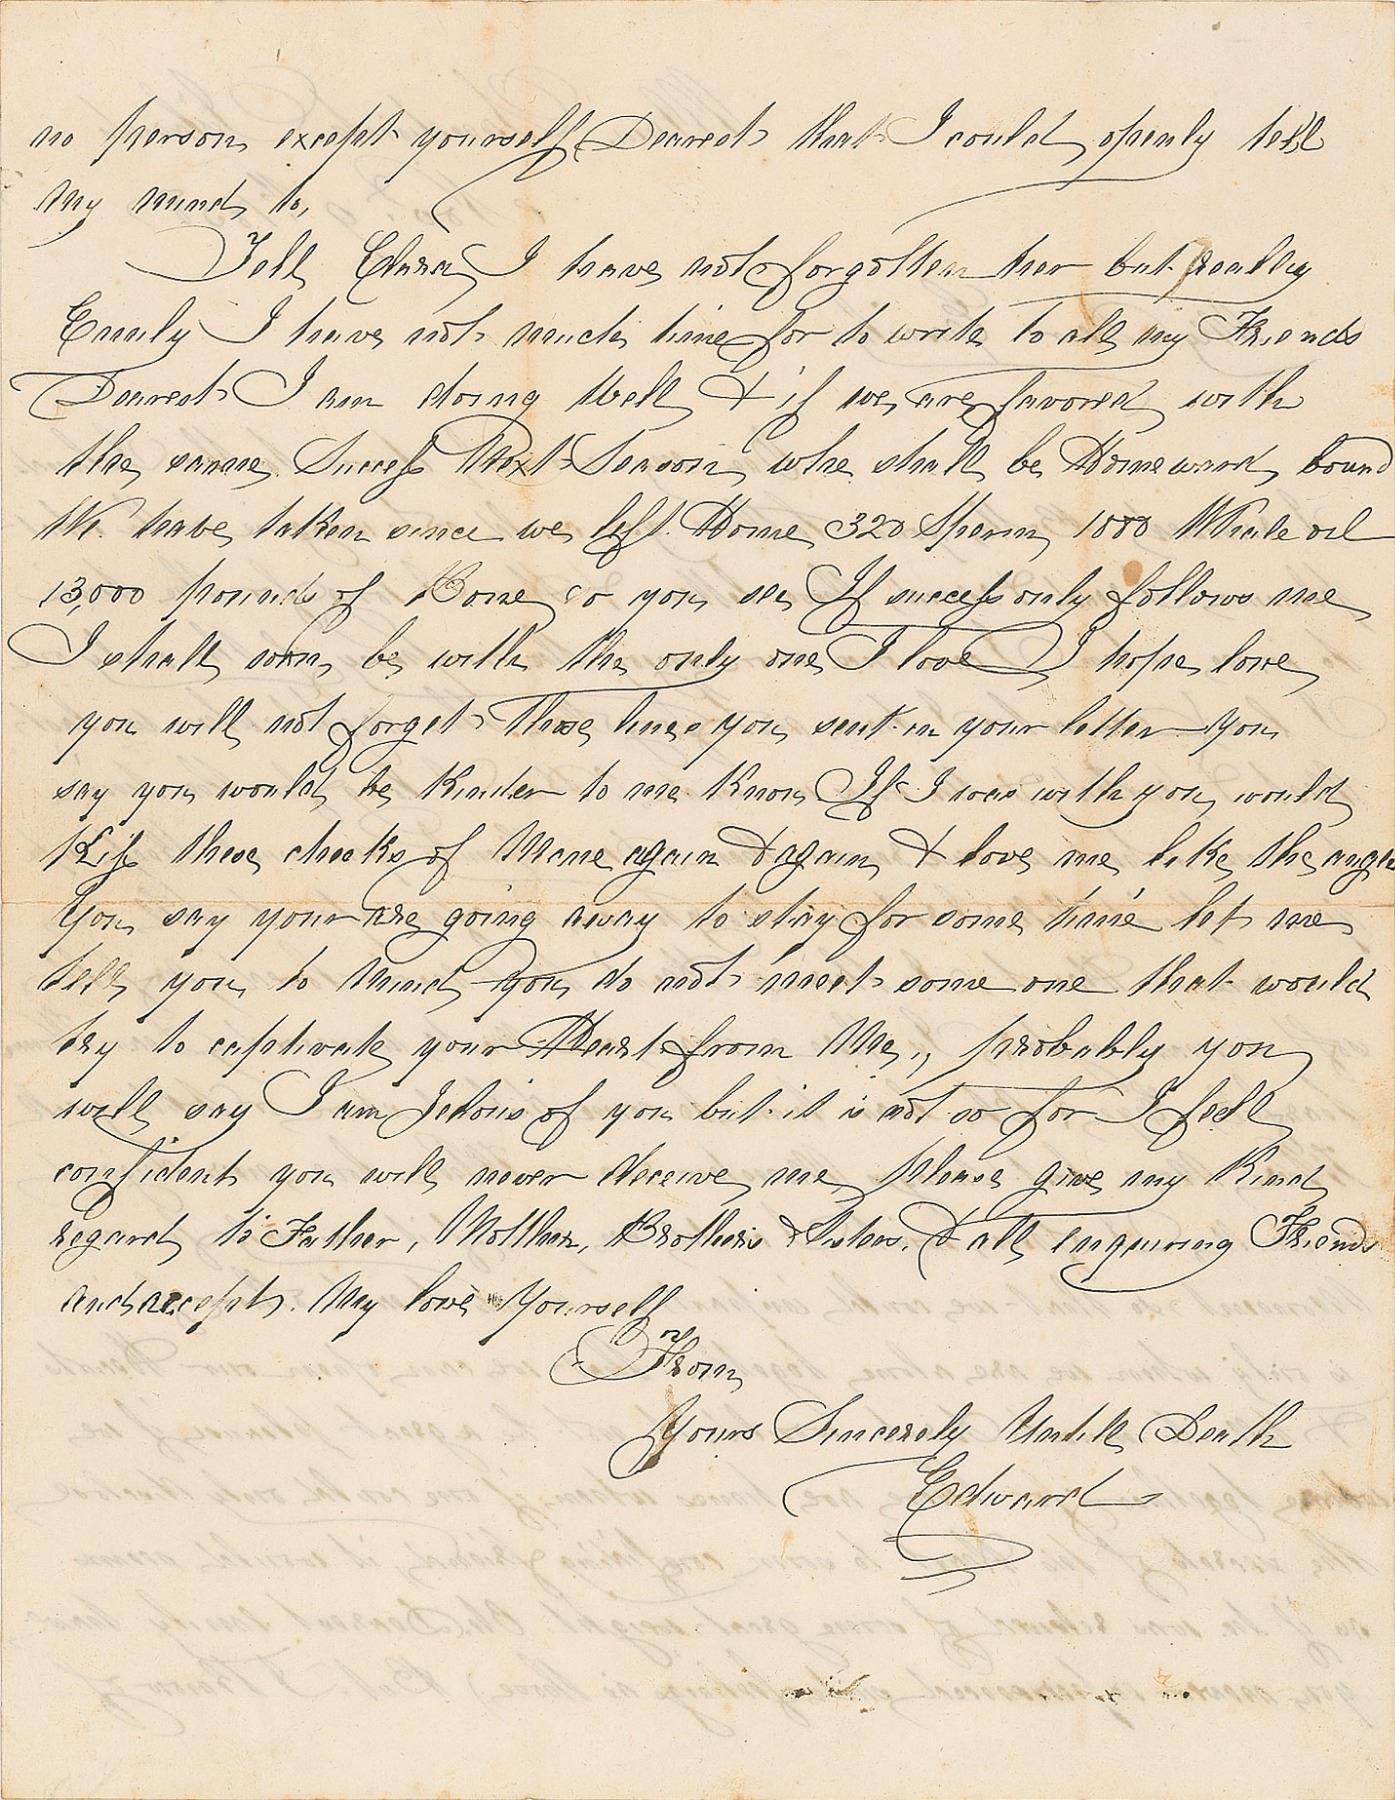 no person except yourself Dearest that I could openly tell
my mind to,
Tell Clara I have not forgotten her but really
Emily I have not much time for to write to all my Friends
Dearest I am doing Well & if we are favored with
the same Success Next Season whe shall be Homeward bound
We have taken since we left Home 320 Sperm 1000 Whale oil
13,000 pounds of Bone so you see If success only follows me
I shall soon be with the only one I love I hope love
you will not forget those lines you sent in your letter you
say you would be Kinder to me Know If I was with you would
Kiss these cheeks of Mine again & again & love me like the angels
You say your are going away to stay for some time let me
tell you to Mind you do not meet some one that would
try to captivate your Heart from Me,, probably you
will say I am Jelous of you but it is not so for I feell
confident you will never deceive me please give my Kind
regard to Father, Mother, Brothers & Sisters, & all enquiring Friends
and accept My love Yourself
From
Yours Sincerely Untill Death
Edward